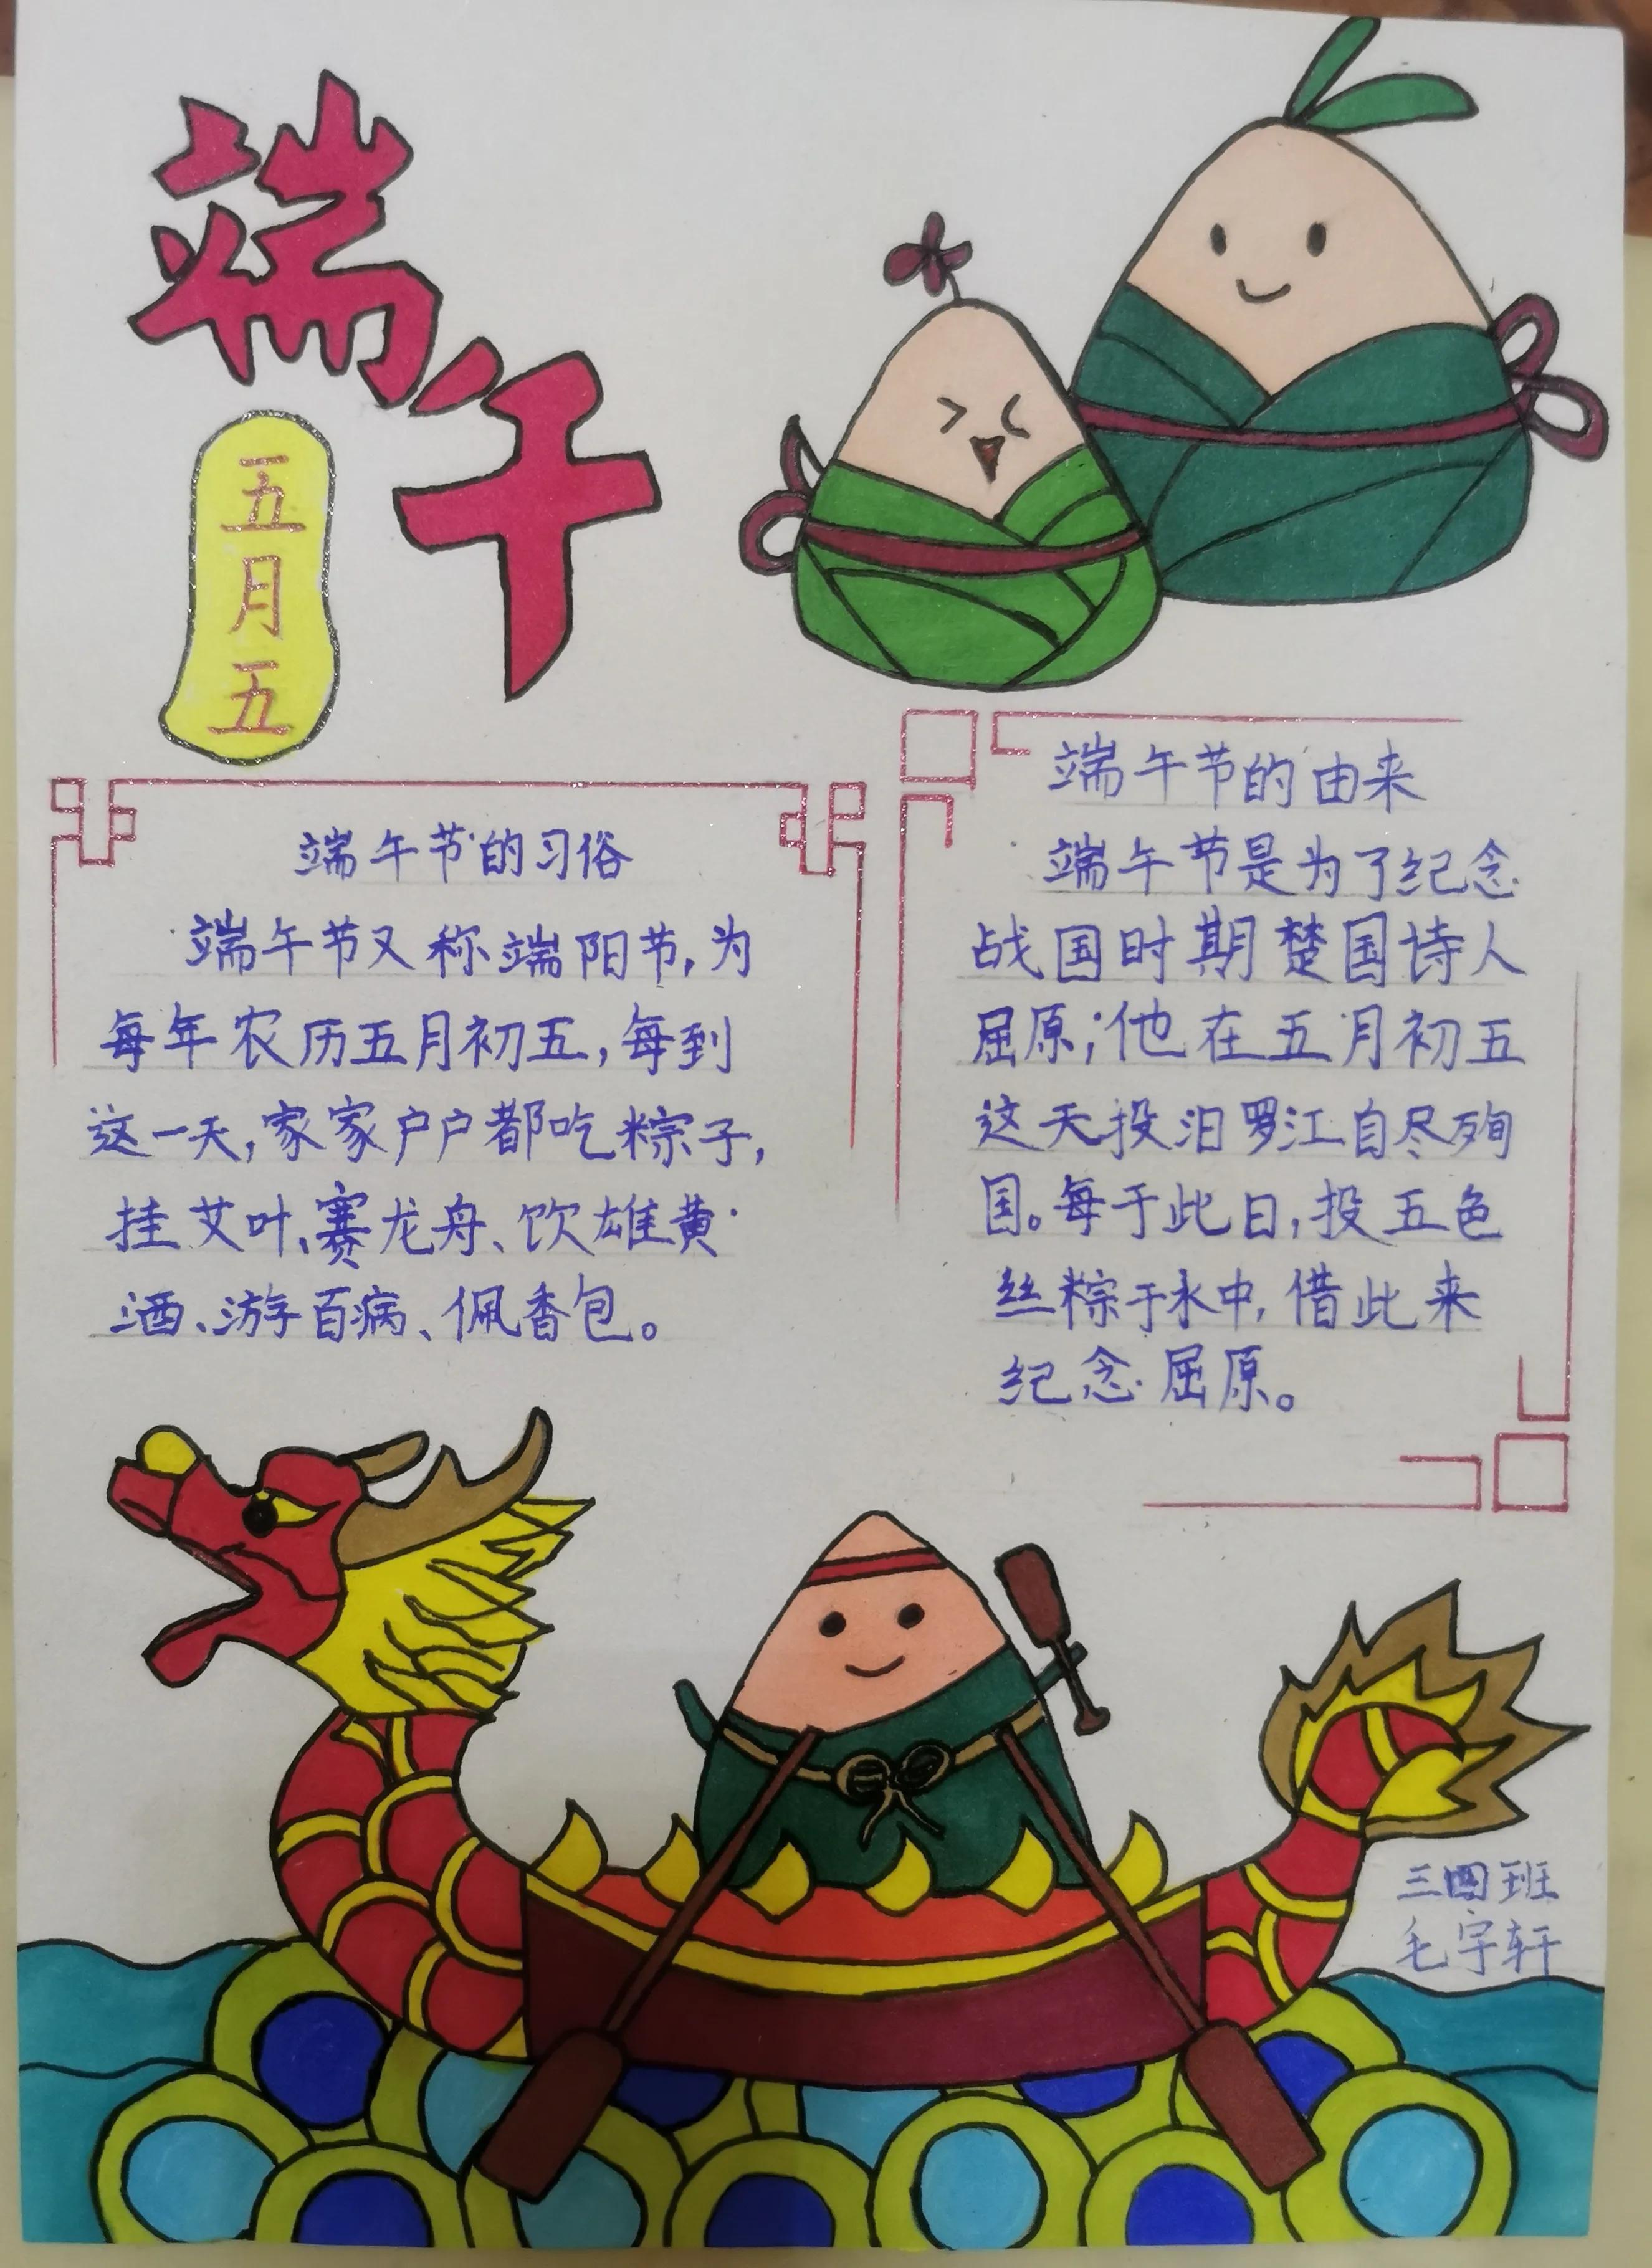 端午
五月五
端午节的习俗
端午节又称端阳节,为
每年农历五月初五,每到
这一天,家家户户都吃粽子,
挂艾叶、赛龙舟、饮雄黄
酒、游百病、佩香包。
端午节的由来
端午节是为了纪念
战国时期楚国诗人
屈原;他在五月初五
这天投汨罗江自尽殉
国。每于此日,投五色
丝粽于水中,借此来
纪念屈原。
三四班
毛宇轩